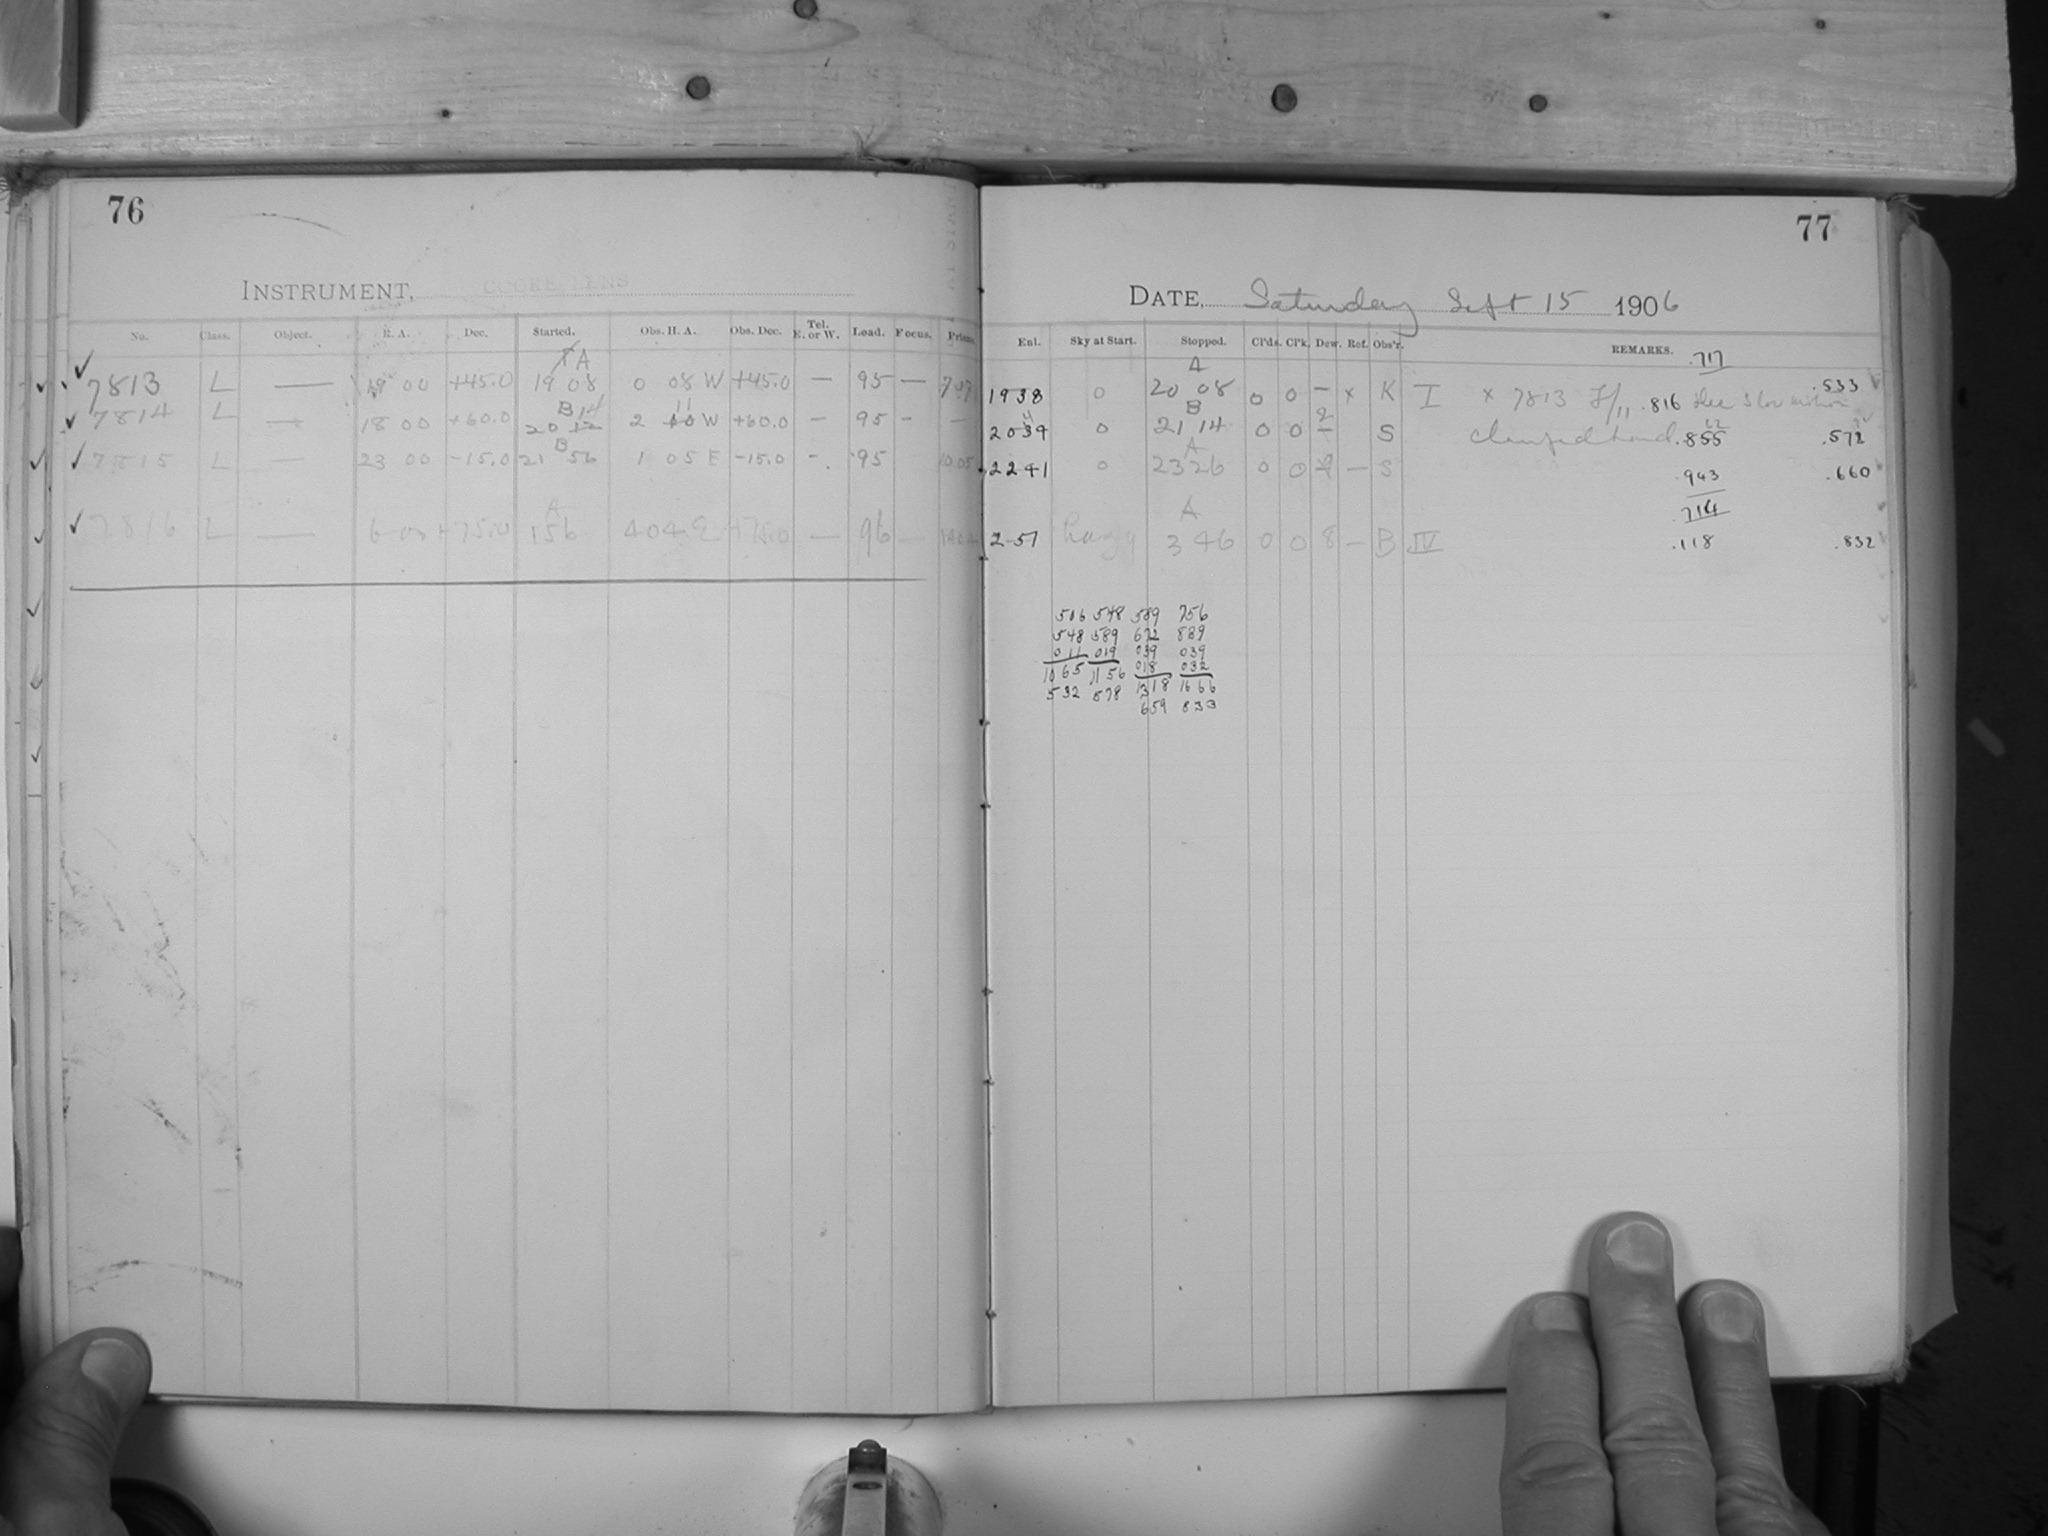 76
77
INSTRUMENT, COOKE LENS
DATE, Saturday Sept 15 1906
No. Class. Object. R. A. Dec. Started. Obs. H. A. Obs. Dec. Tel. E. or W. Load. Focus. Prisms.
Ent. Sky at Start. Stopped. Cl'ds. Cl'k. Dew. Ref. Obs'r. REMARKS. .717
A A
7813 L — 19 00 +45.0 19 08 0 08 W +45.0 — 95 — 1938 0 20 08 0 0 — x K I x 7813 F/11 .816 slow motion .533
B 14 11 B
7814 L — 18 00 +60.0 20 12 2 10 W +60.0 — 95 - — 2034 0 21 14 0 0 — S clamped hand .855 .572
B A
7815 L — 23 00 -15.0 21 56 1 05 E -15.0 -. 95 1005 2241 0 23 26 0 0 — S .943 .660
A A .714
7816 L — 6 00 +75.0 1 56 4 04 E +75.0 — 96 — 2 51 hazy 3 46 0 0 8 — B IV .118 .832
506 548 589 756
548 589 672 889
011 019 039 039
1065 1156 018 032
532 578 1318 1666
659 833